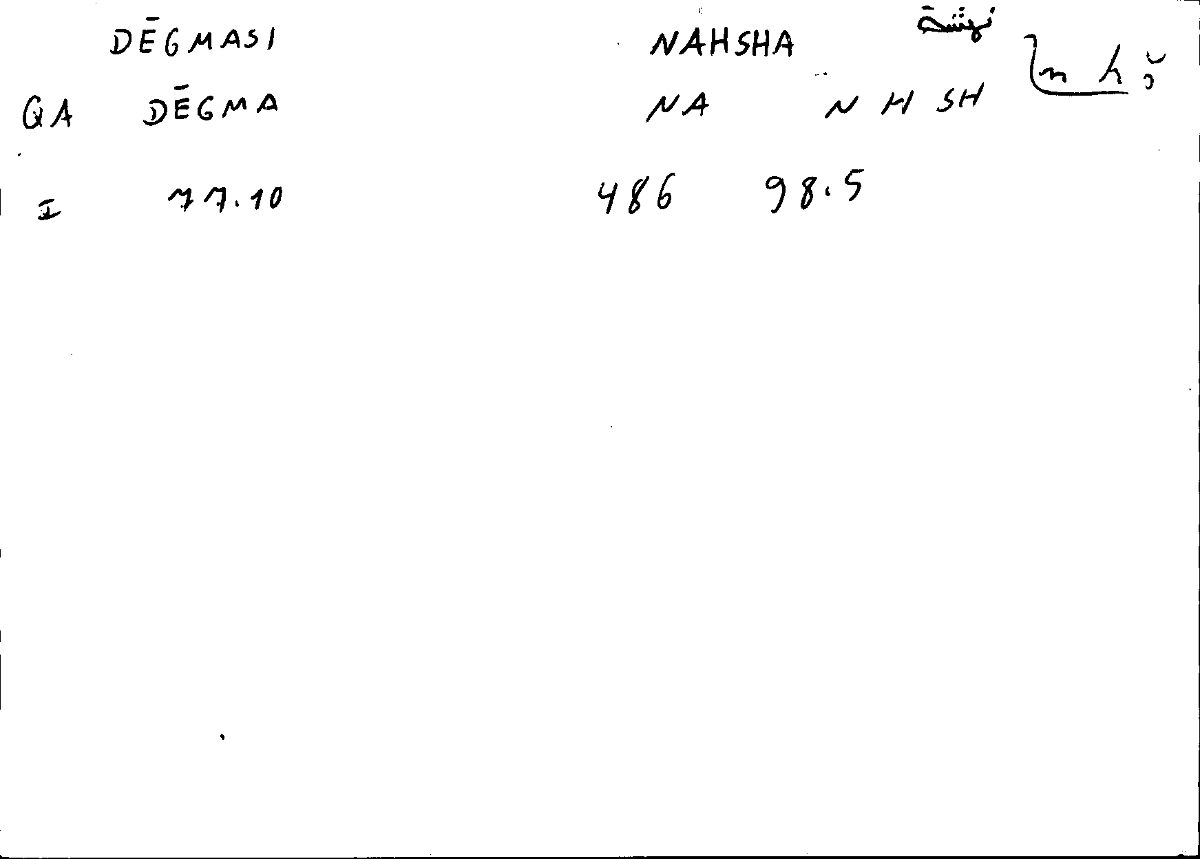 DĒGMASI NAHSHA نهشة
QA DĒGMA NA N H SH
I 77.10 486 98.5